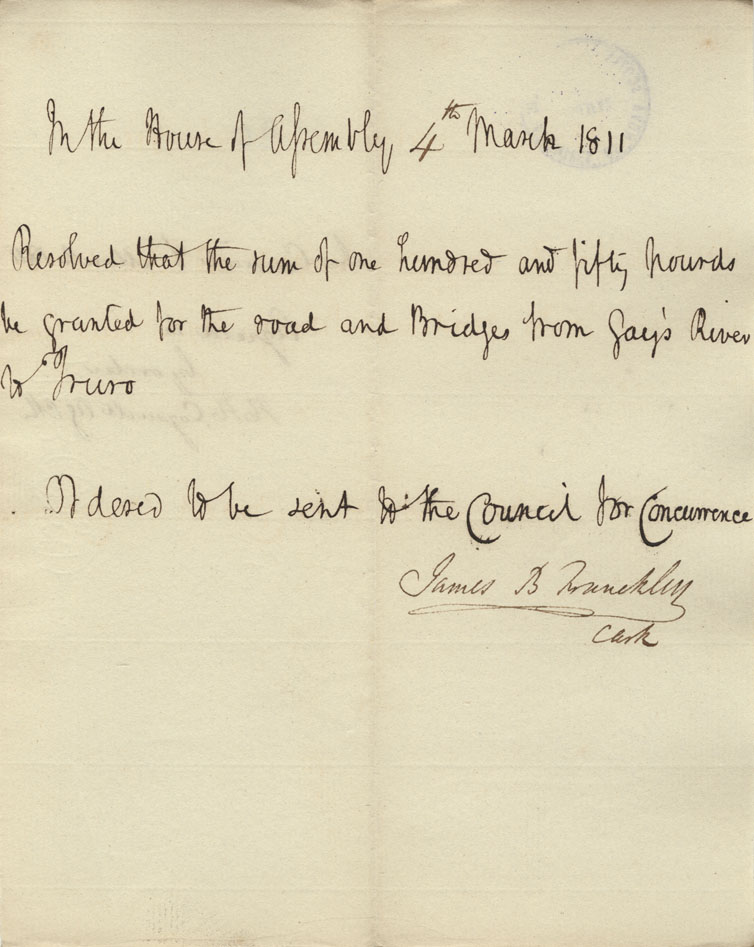 In the House of Assembly, 4th March 1811
Resolved that the sum of one hundred and fifty pounds
be granted for the road and Bridges from Gay's River
to Truro
Ordered to be sent to the Council for Concurrence
James B Franckley
Clerk